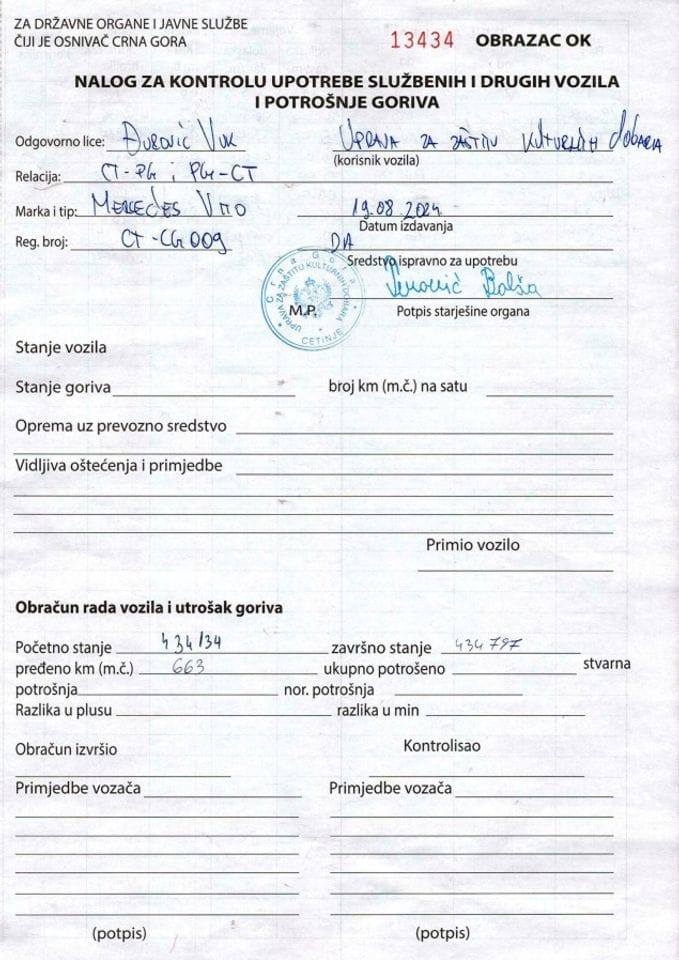 ZA DRŽAVNE ORGANE I JAVNE SLUŽBE
ČIJI JE OSNIVAČ CRNA GORA
13434 OBRAZAC OK
NALOG ZA KONTROLU UPOTREBE SLUŽBENIH I DRUGIH VOZILA
I POTROŠNJE GORIVA
Odgovorno lice: Đurović Vuk UPRAVA ZA ZAŠTITU KULTURNIH DOBARA
(korisnik vozila)
Relacija: CT-PG i PG-CT
Marka i tip: MERCEDES VITO 19.08.2024
Datum izdavanja
Reg. broj: CT-CG009 DA
Sredstvo ispravno za upotrebu
Crna Gora
UPRAVA ZA ZAŠTITU KULTURNIH DOBARA
CETINJE
M.P.
Potpis starješine organa
Stanje vozila
Stanje goriva broj km (m.č.) na satu
Oprema uz prevozno sredstvo
Vidljiva oštećenja i primjedbe
Primio vozilo
Obračun rada vozila i utrošak goriva
Početno stanje 434134 završno stanje 434797
pređeno km (m.č.) 663 ukupno potrošeno stvarna
potrošnja nor. potrošnja
Razlika u plusu razlika u min
Obračun izvršio Kontrolisao
Primjedbe vozača Primjedbe vozača
(potpis) (potpis)